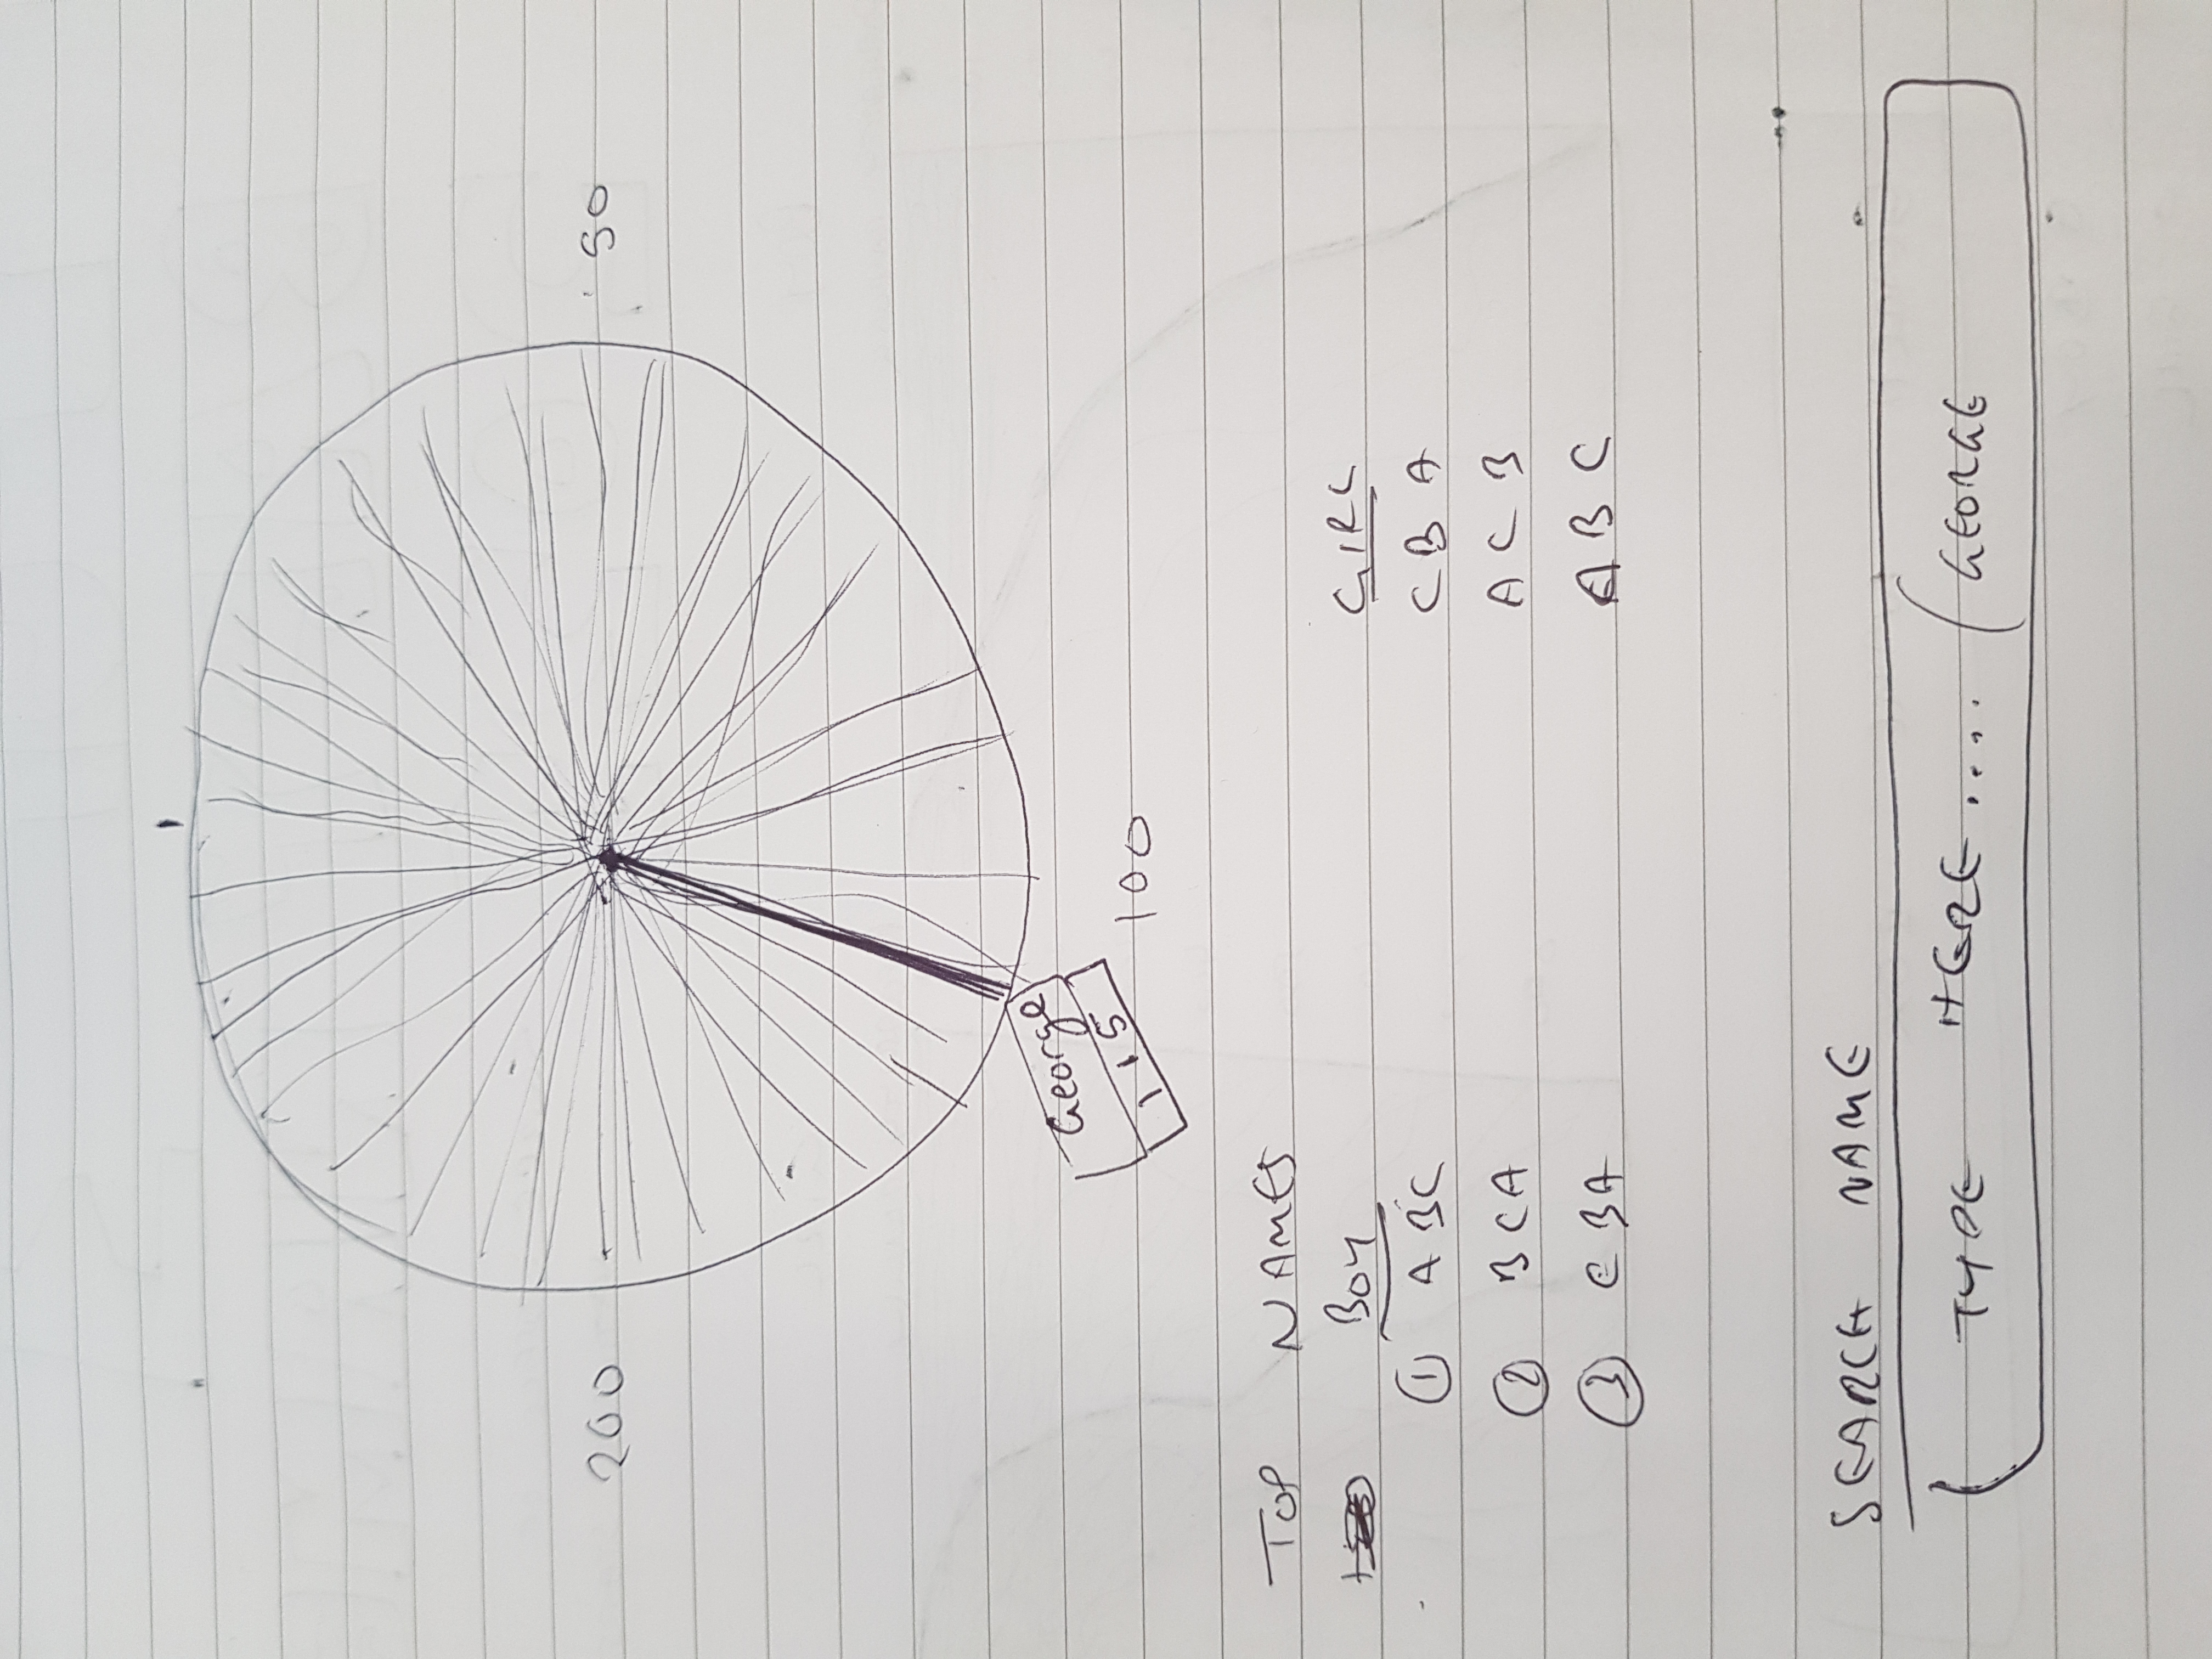 1
200
50
George
115
100
TOP NAMES
BOY GIRL
1 ABC CBA
2 BCA ACB
3 CBA ABC
SEARCH NAME
TYPE HERE .... GEORGE